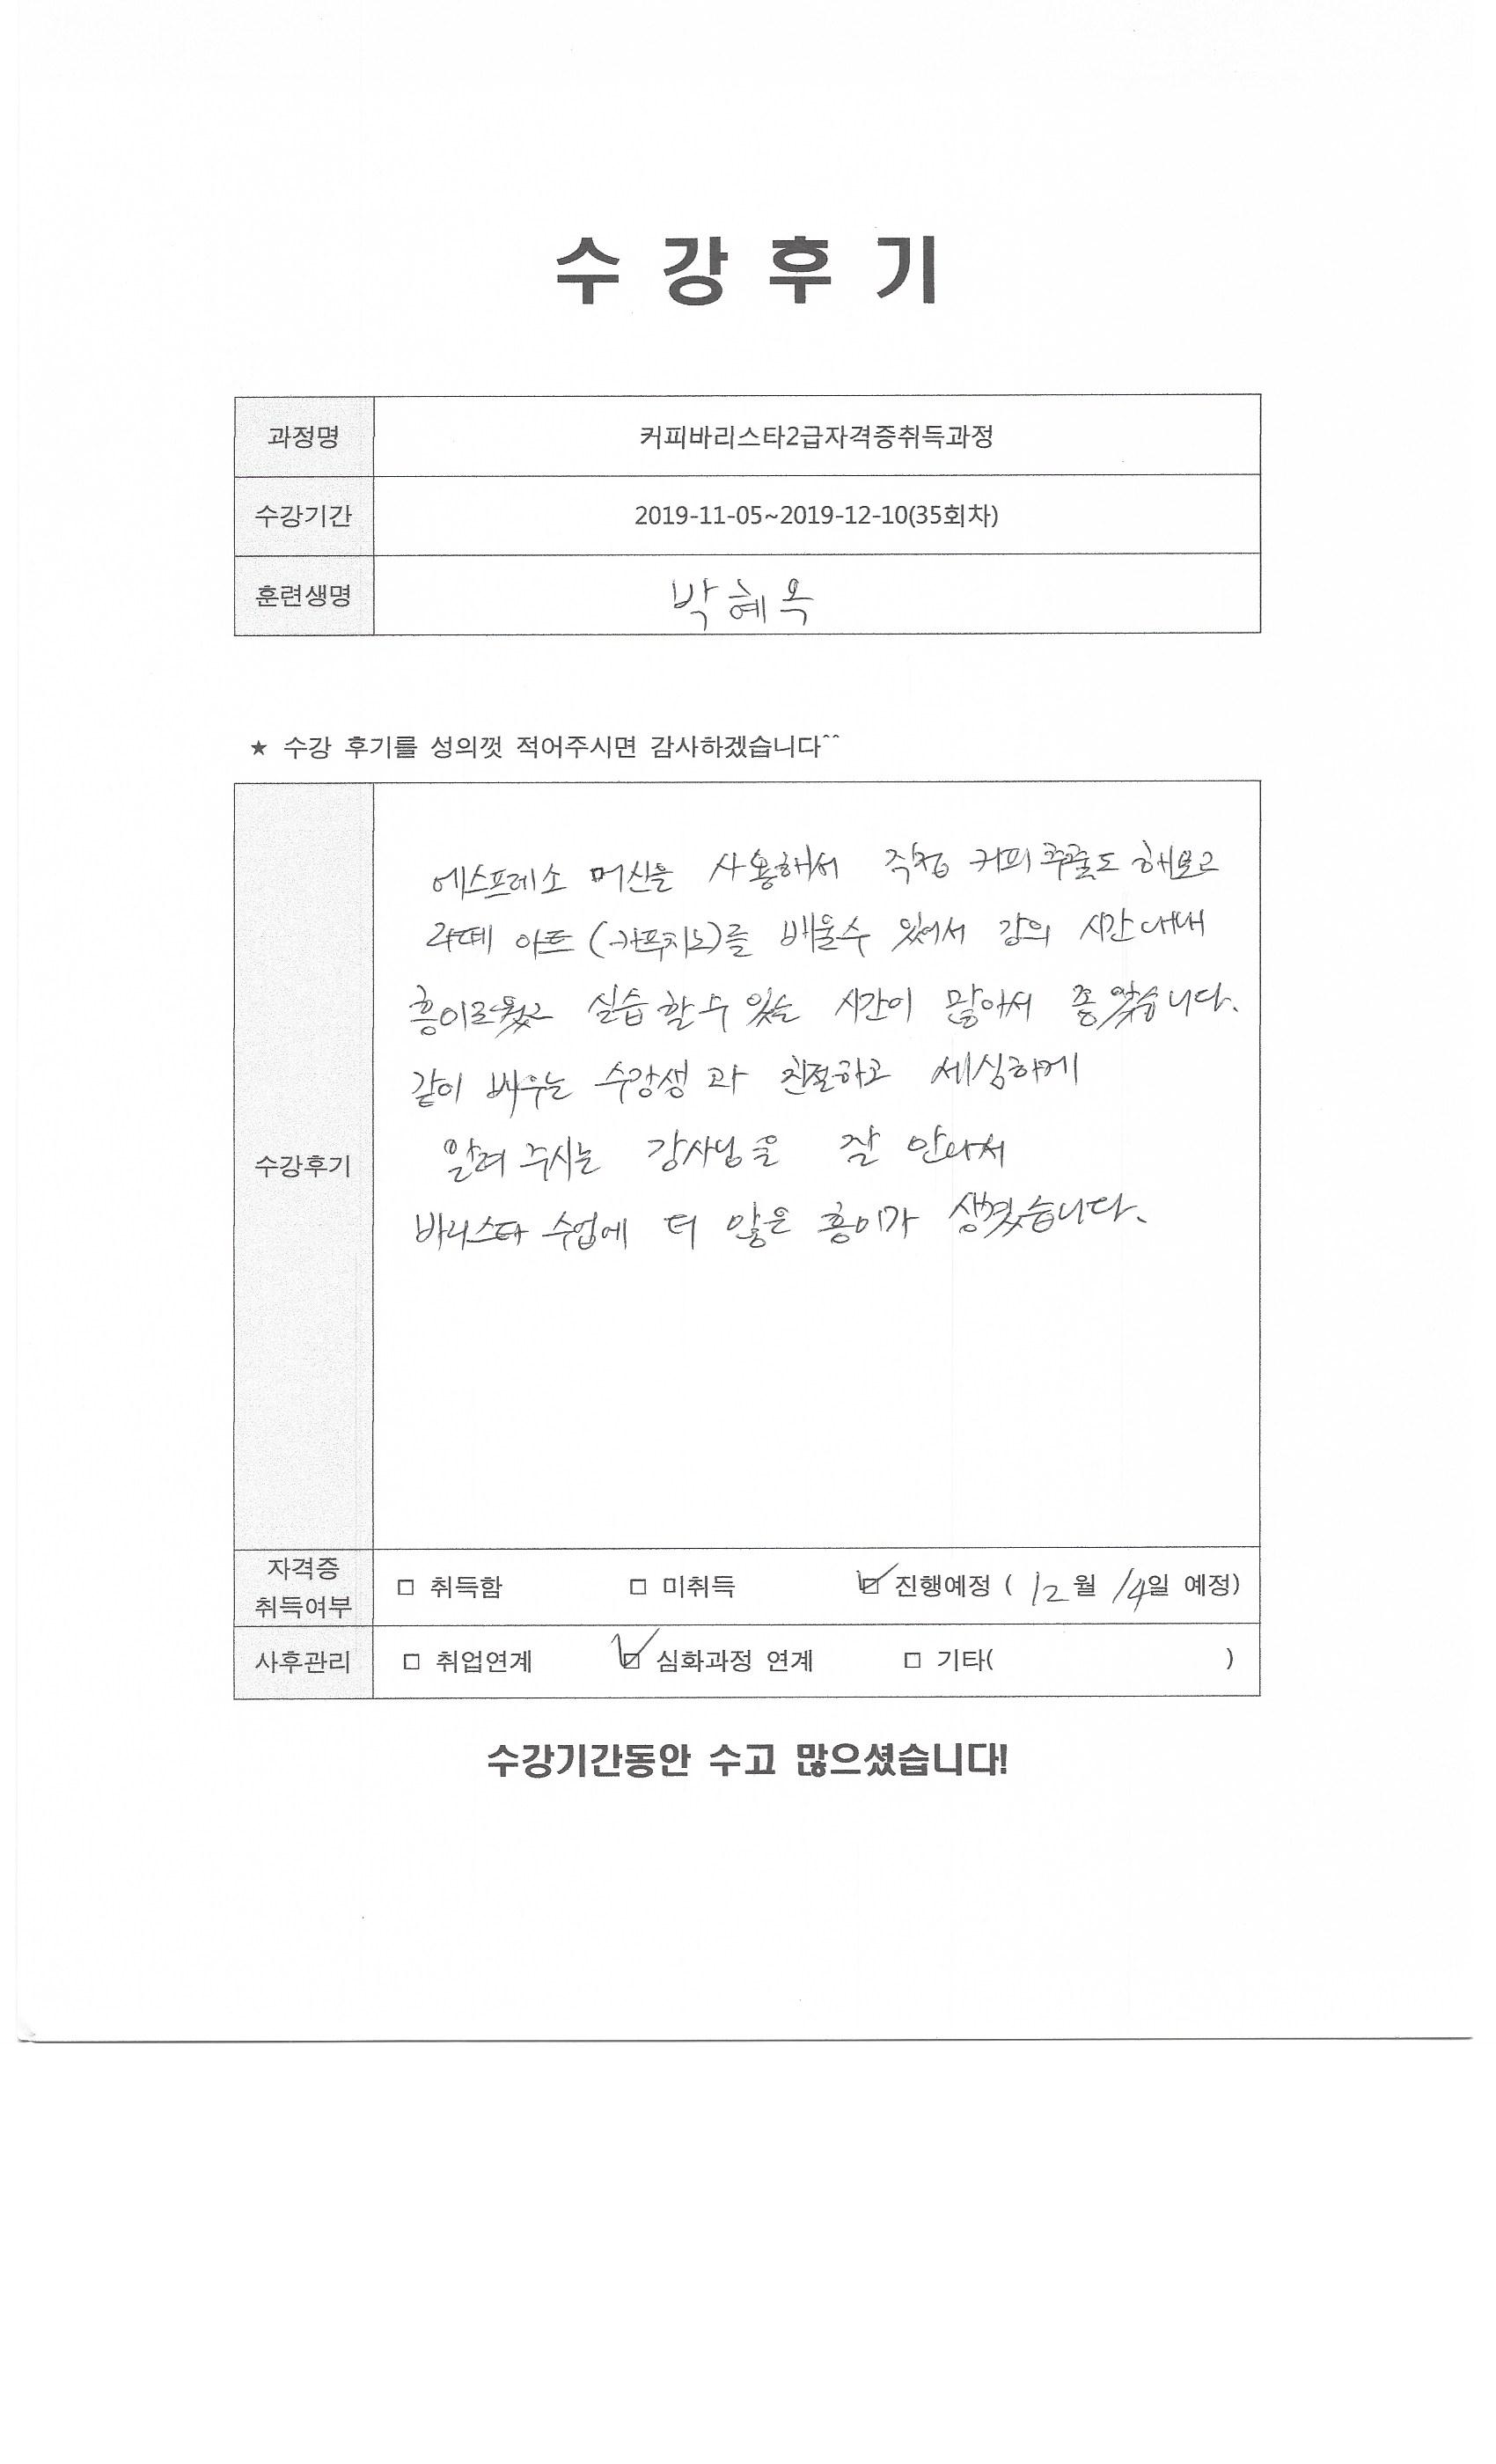 수 강 후 기
과정명 커피바리스타2급자격증취득과정
수강기간 2019-11-05~2019-12-10(35회차)
훈련생명 박혜옥
★ 수강 후기를 성의껏 적어주시면 감사하겠습니다^^
수강후기
에스프레소 머신을 사용해서 직접 커피 추출도 해보고
라떼 아트 (카푸치노)를 배울수 있어서 강의 시간 내내
흥이로웠고 실습 할 수 있는 시간이 많아서 좋았습니다.
같이 배우는 수강생 과 친절하고 세심하게
알려 주시는 강사님을 잘 만나서
바리스타 수업에 더 많은 흥이가 생겼습니다.
자격증 취득여부 □ 취득함 □ 미취득 ☑ 진행예정 ( 12월 14일 예정)
사후관리 □ 취업연계 ☑ 심화과정 연계 □ 기타( )
수강기간동안 수고 많으셨습니다!